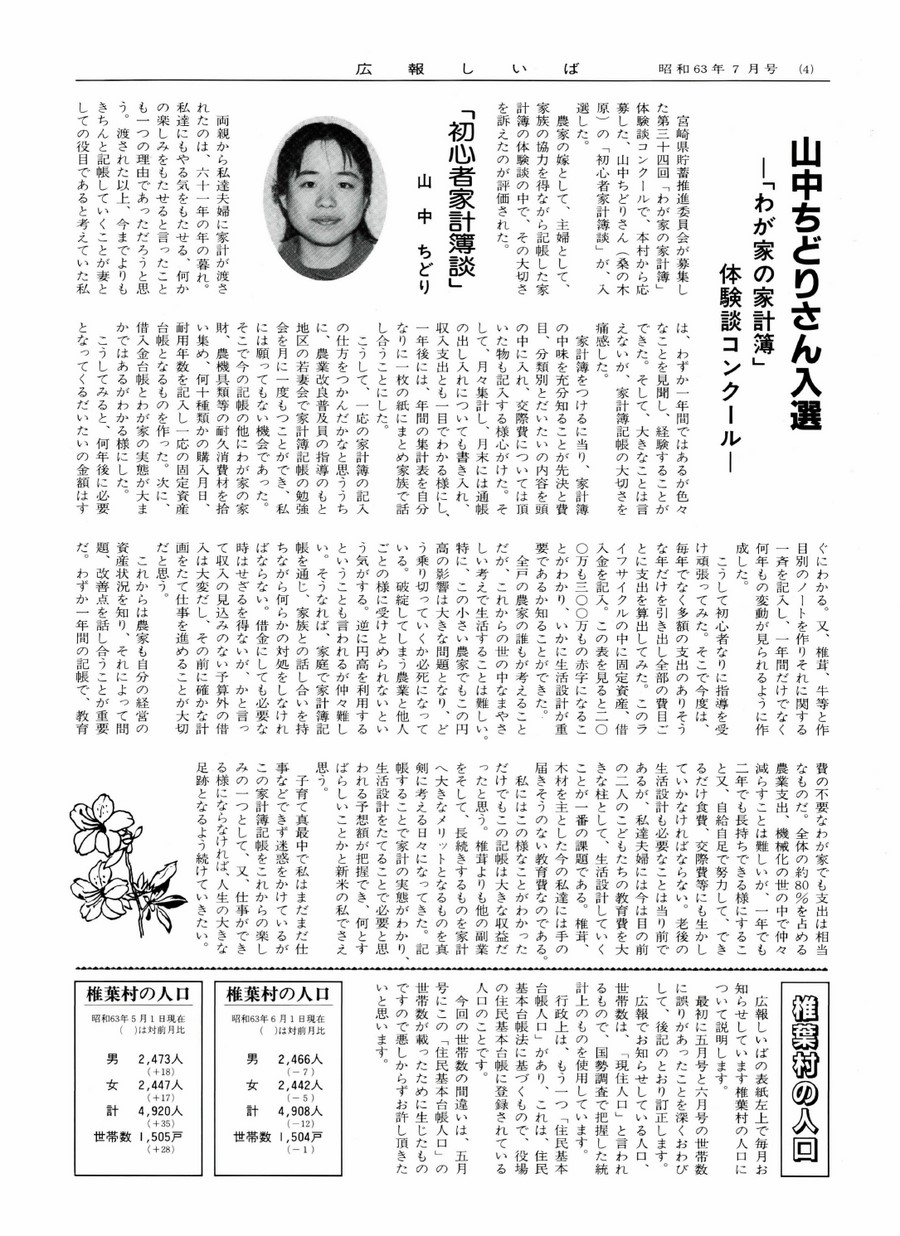 広報しいば
昭和63年7月号 (4)
山中ちどりさん入選
―「わが家の家計簿」
体験談コンクール―
宮崎県貯蓄推進委員会が募集し
た第三十四回「わが家の家計簿」
体験談コンクールで、本村から応
募した、山中ちどりさん（桑の木
原）の「初心者家計簿談」が、入
選した。
農家の嫁として、主婦として、
家族の協力を得ながら記帳した家
計簿の体験談の中で、その大切さ
を訴えたのが評価された。
「初心者家計簿談」
山中ちどり
両親から私達夫婦に家計が渡さ
れたのは、六十一年の年の暮れ。
私達にもやる気をもたせる、何か
の楽しみをもたせると言ったこと
も一つの理由であっただろうと思
う。渡された以上、今までよりも
きちんと記帳していくことが妻と
しての役目であると考えていた私
は、わずか一年間ではあるが色々
なことを見聞し、経験することが
できた。そして、大きなことは言
えないが、家計簿記帳の大切さを
痛感した。
家計簿をつけるに当り、家計簿
の中味を充分知ることが先決と費
目、分類別とだいたいの内容を頭
の中に入れ、交際費については頂
いた物も記入する様心がけた。そ
して、月々集計し、月末には通帳
の出し入れについても書き入れ、
収入支出とも一目でわかる様にし、
一年後には、年間の集計表を自分
なりに一枚の紙にまとめ家族で話
し合うことにした。
こうして、一応の家計簿の記入
の仕方をつかんだかなと思ううち
に、農業改良普及員の指導のもと
地区の若妻会で家計簿記帳の勉強
会を月に一度もつことができ、私
には願ってもない機会であった。
そこで今の記帳の他にわが家の家
財、農機具類等の耐久消費材を拾
い集め、何十種類かの購入月日、
耐用年数を記入し一応の固定資産
台帳となるものを作った。次に、
借入金台帳とわが家の実態が大ま
かではあるがわかる様にした。
こうしてみると、何年後に必要
となってくるだいたいの金額はす
ぐにわかる。又、椎茸、牛等と作
目別のノートを作りそれに関する
一斉を記入し、一年間だけでなく
何年もの変動が見られるように作
成した。
こうして初心者なりに指導を受
け頑張ってみた。そこで今度は、
毎年でなく多額の支出のありそう
な年だけを引き出し全部の費目ご
とに支出を算出してみた。このラ
イフサイクルの中に固定資産、借
入金を記入。この表を見ると二〇
〇万も三〇〇万もの赤字になるこ
とがわかり、いかに生活設計が重
要であるか知ることができた。
全戸の農家の誰もが考えること
だが、これからの世の中なまやさ
しい考えで生活することは難しい。
特に、この小さい農家でもこの円
高の影響は大きな問題となり、ど
う乗り切っていくか必死になって
いる。破綻してしまう農業と他人
ごとの様に受けとめられないとい
う気がする。逆に円高を利用する
ということも言われるが仲々難し
い。そうなれば、家庭で家計簿記
帳を通し、家族との話し合いを持
ちながら何らかの対処をしなけれ
ばならない。借金にしても必要な
時はせざるを得ないが、かと言っ
て収入の見込みのない予算外の借
入は大変だし、その前に確かな計
画をたて仕事を進めることが大切
だと思う。
これからは農家も自分の経営の
資産状況を知り、それによって問
題、改善点を話し合うことが重要
だ。わずか一年間の記帳で、教育
費の不要なわが家でも支出は相当
なものだ。全体の約80%を占める
農業支出、機械化の世の中で仲々
減らすことは難しいが、一年でも
二年でも長持ちできる様にするこ
と又、自給自足で努力して、でき
るだけ食費、交際費等にも生かし
ていかなければならない。老後の
生活設計も必要なことは当り前で
あるが、私達夫婦には今は目の前
の二人のこどもたちの教育費を大
きな柱として、生活設計していく
ことが一番の課題である。椎茸、
木材を主とした今の私達には手の
届きそうのない教育費なのである。
私にはこの様なことがわかった
だけでもこの記帳は大きな収益だ
ったと思う。椎茸よりも他の副業
をそして、長続きするものを家計
へ大きなメリットとなるものを真
剣に考える日々になってきた。記
帳することで家計の実態がわかり、
生活設計をたてることで必要と思
われる予想額が把握でき、何とす
ばらしいことかと新米の私でさえ
思う。
子育て真最中で私はまだまだ仕
事などできず迷惑をかけているが
この家計簿記帳をこれからの楽し
みの一つとして、又、仕事ができ
る様にならなければ、人生の大きな
足跡となるよう続けていきたい。
椎葉村の人口
広報しいばの表紙左上で毎月お
知らせしています椎葉村の人口に
ついて説明します。
最初に五月号と六月号の世帯数
に誤りがあったことを深くおわび
して、後記のとおり訂正します。
広報でお知らせしている人口、
世帯数は、「現住人口」と言われ
るもので、国勢調査で把握した統
計上のものを使用しています。
行政上は、もう一つ「住民基本
台帳人口」があり、これは、住民
基本台帳法に基づくもので、役場
の住民基本台帳に登録されている
人口のことです。
今回の世帯数の間違いは、五月
号にこの「住民基本台帳人口」の
世帯数が載ったために生じたもの
ですので悪しからずお許し頂きた
いと思います。
椎葉村の人口
昭和63年6月1日現在
( )は対前月比
男 2,466人
(−7)
女 2,442人
(−5)
計 4,908人
(−12)
世帯数 1,504戸
(−1)
椎葉村の人口
昭和63年5月1日現在
( )は対前月比
男 2,473人
(+18)
女 2,447人
(+17)
計 4,920人
(+35)
世帯数 1,505戸
(+28)